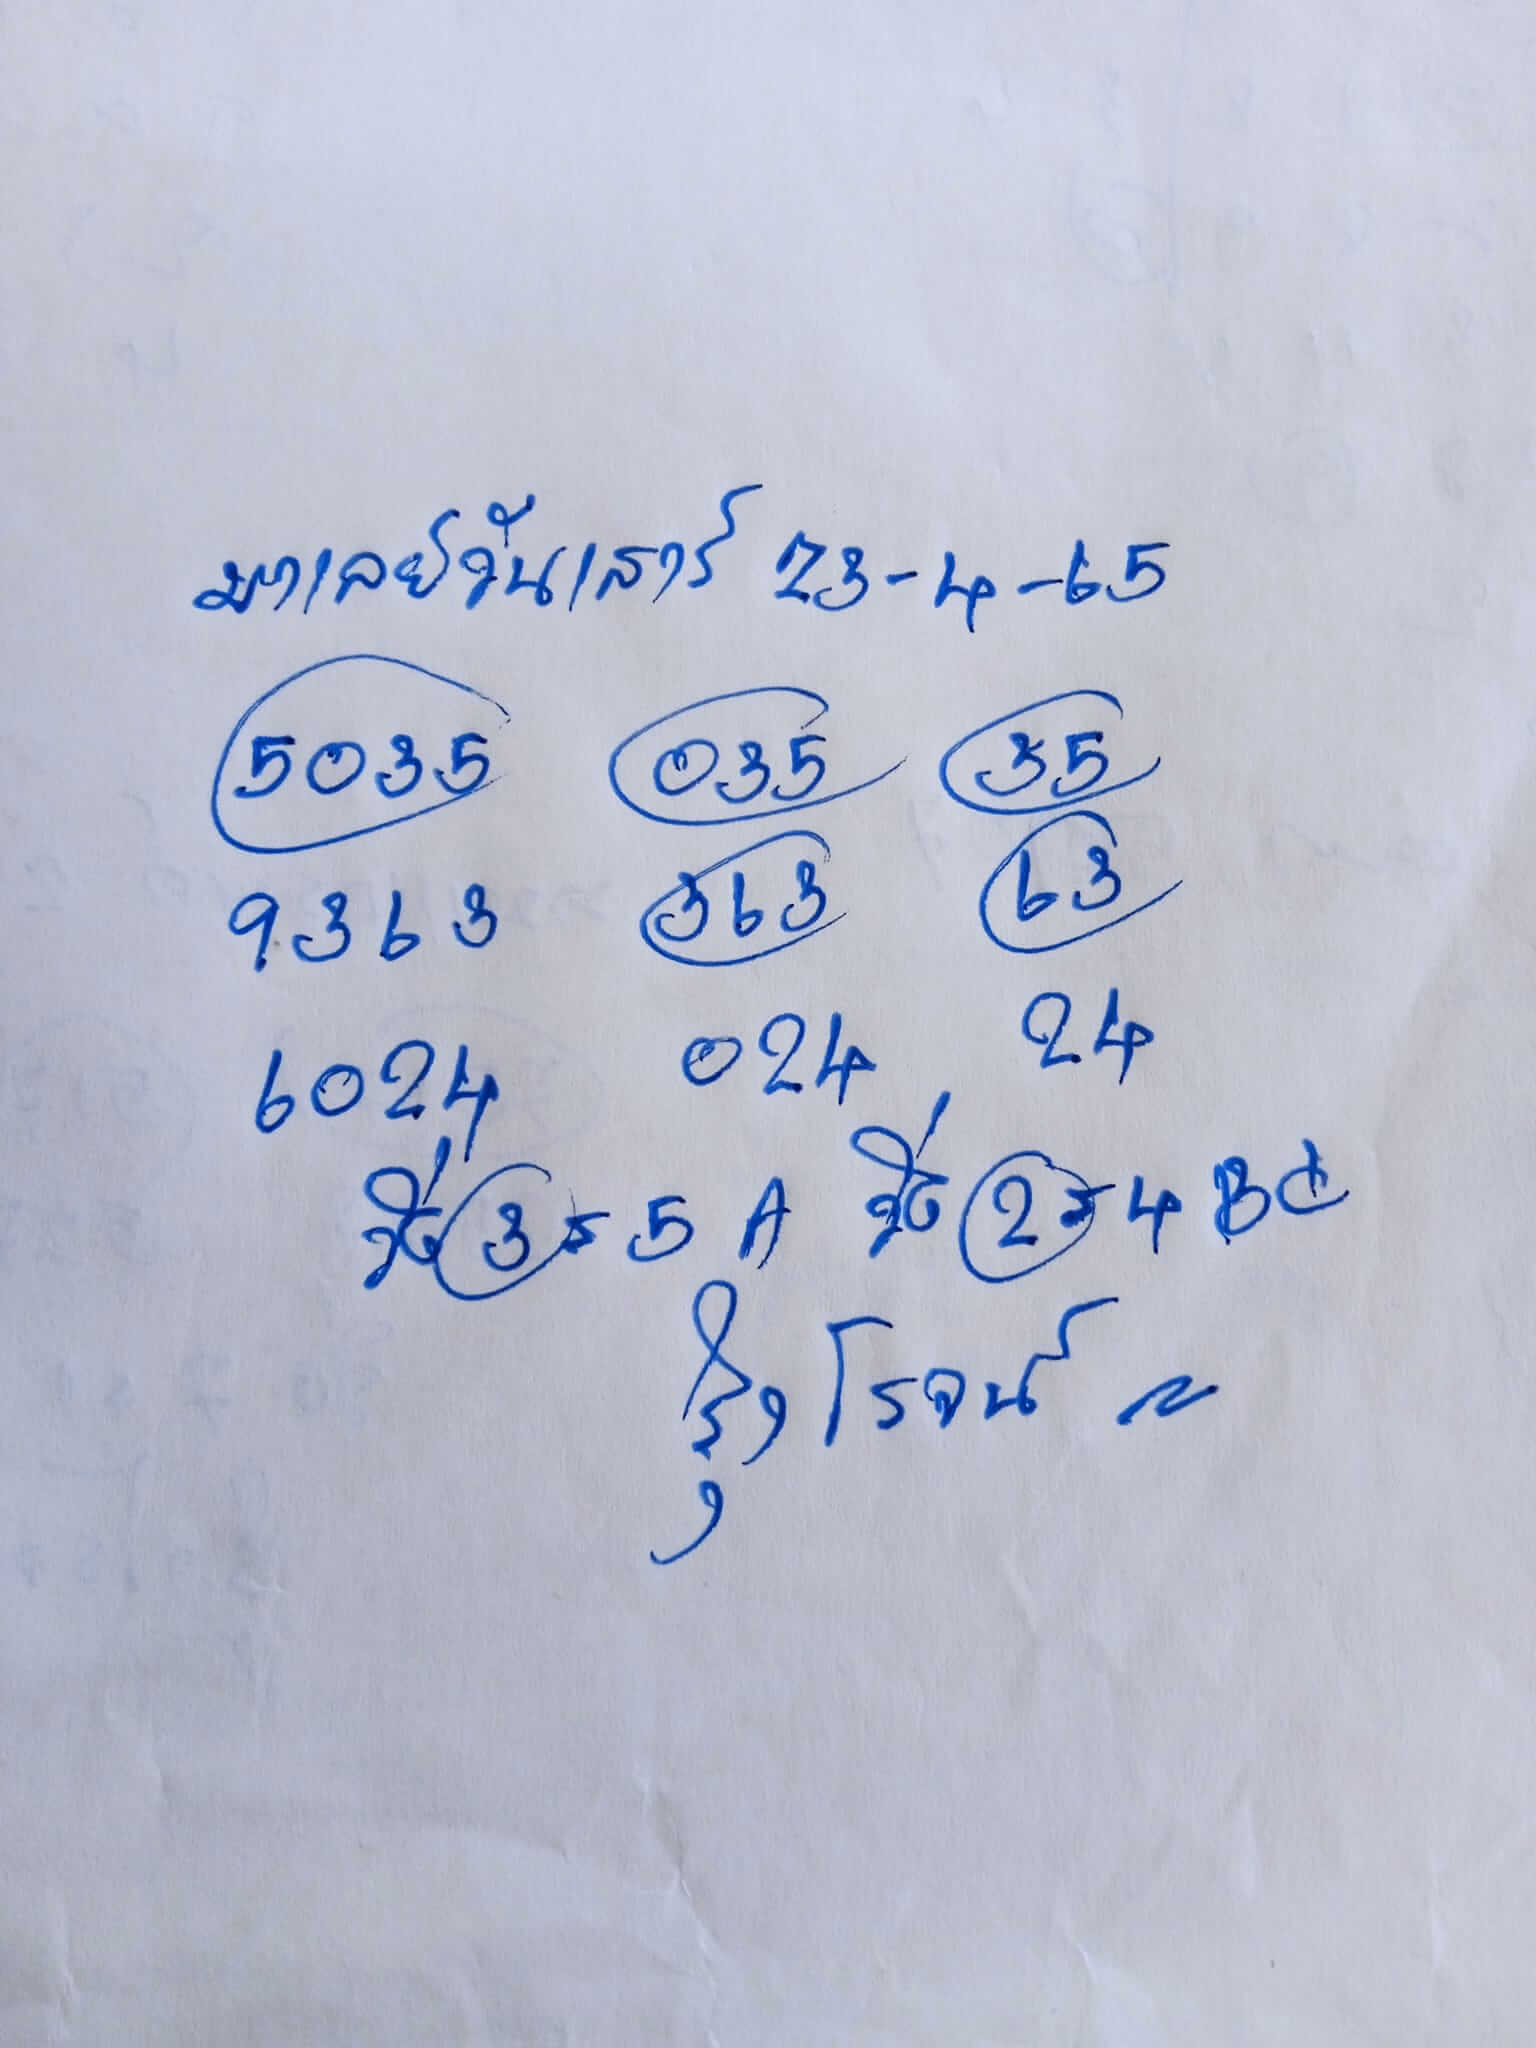 มาเลย์วันเสาร์ 23-4-65
5035 035 35
9363 363 63
6024 024 24
วิ่ง 3 = 5 A วิ่ง 2 = 4 BC
รุ่งโรจน์